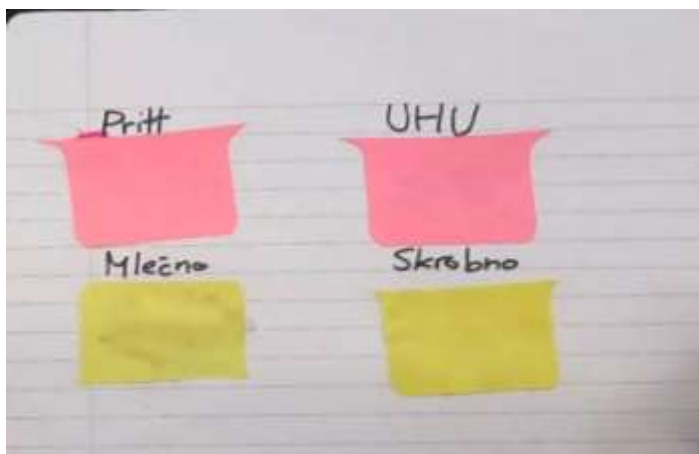 Pritt UHU
Mlečno Skrobno